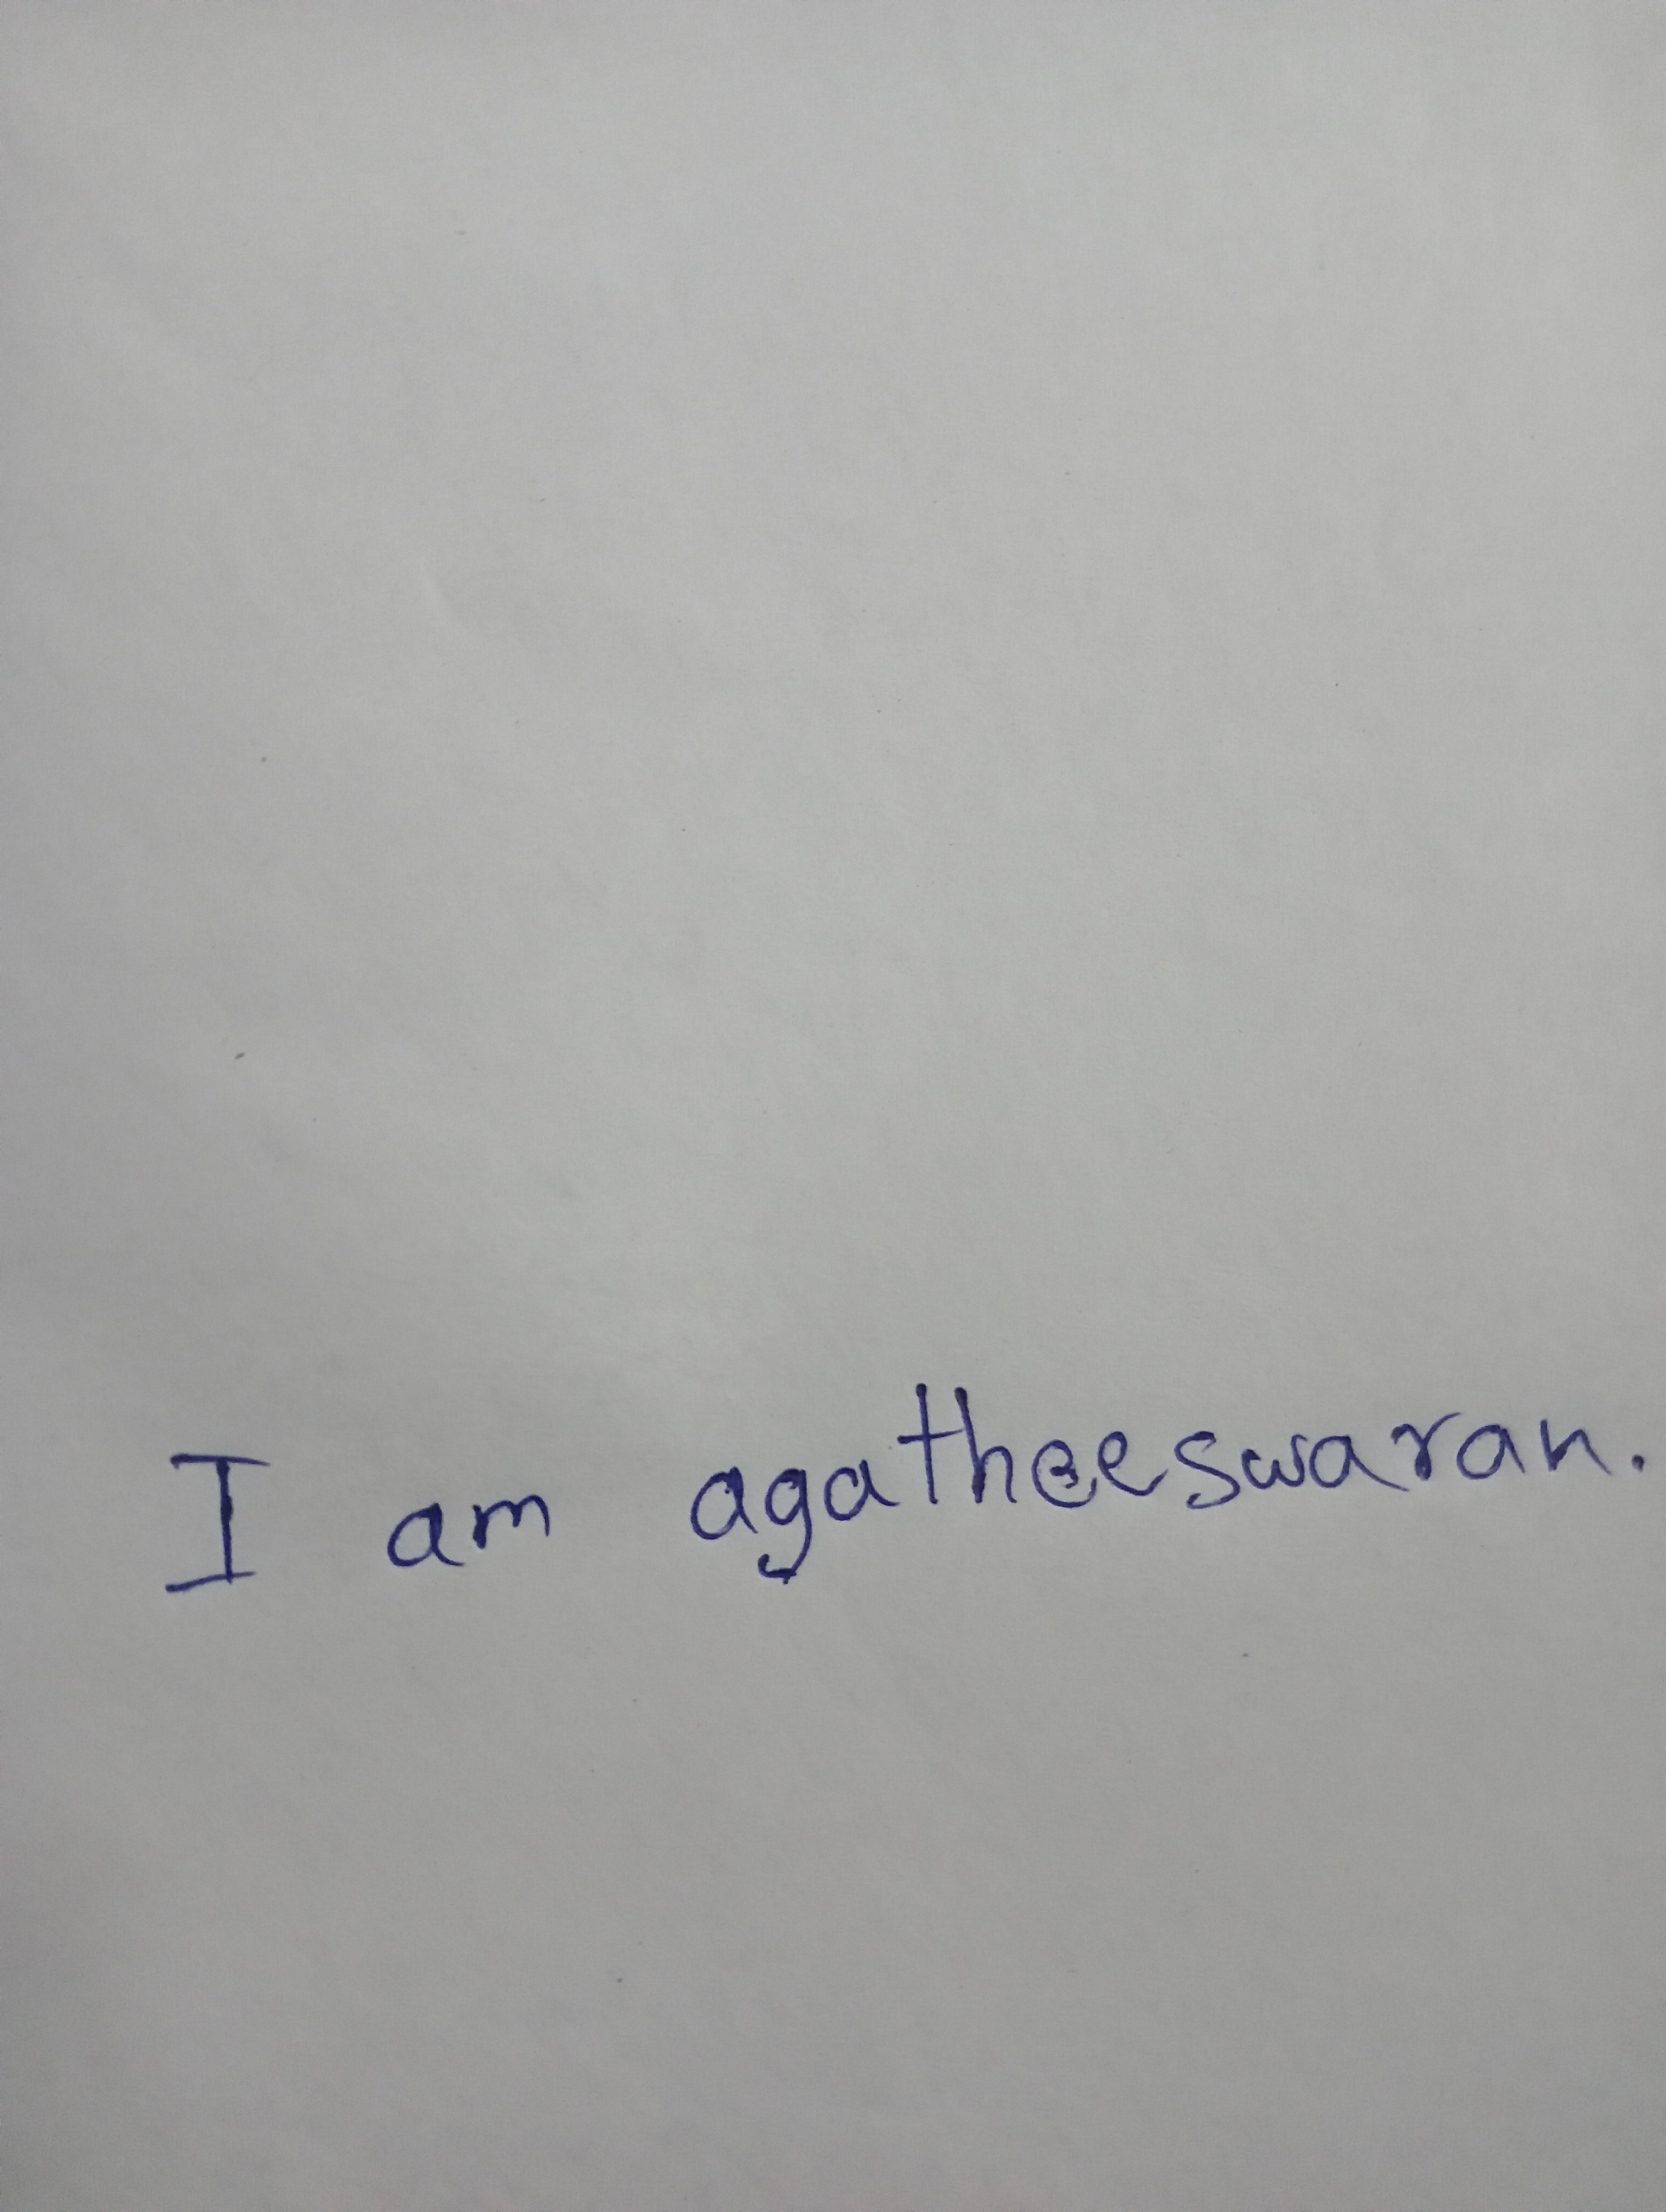 I am agatheeswaran.